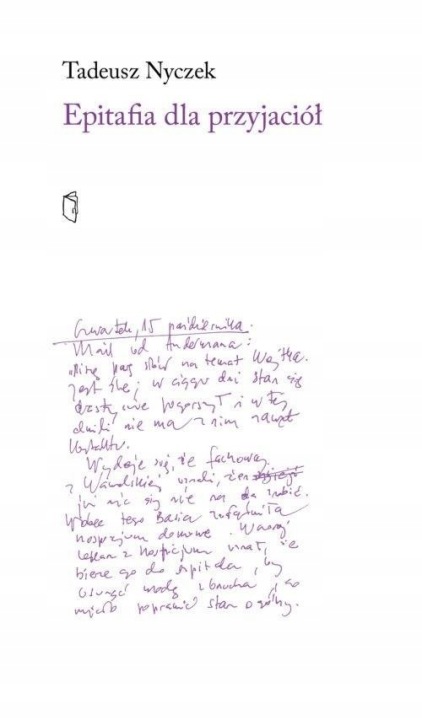 Tadeusz Nyczek
Epitafia dla przyjaciół
Czwartek, 15 października.
Mail od Andermana:
parę słów na temat Wojtka.
jest źle; w ciągu dni stan się
drastycznie pogorszył i w tej
chwili nie ma z nim nawet
kontaktu.
Wydaje się, że fachowcy
z Wawelskiej uznali, że
już nic się nie da zrobić.
Wobec tego Basia załatwiła
hospicjum domowe.
lekarz z hospicjum uznał, że
bierze go do szpitala, by
usunąć wodę z brzucha, co
miało poprawić stan ogólny.